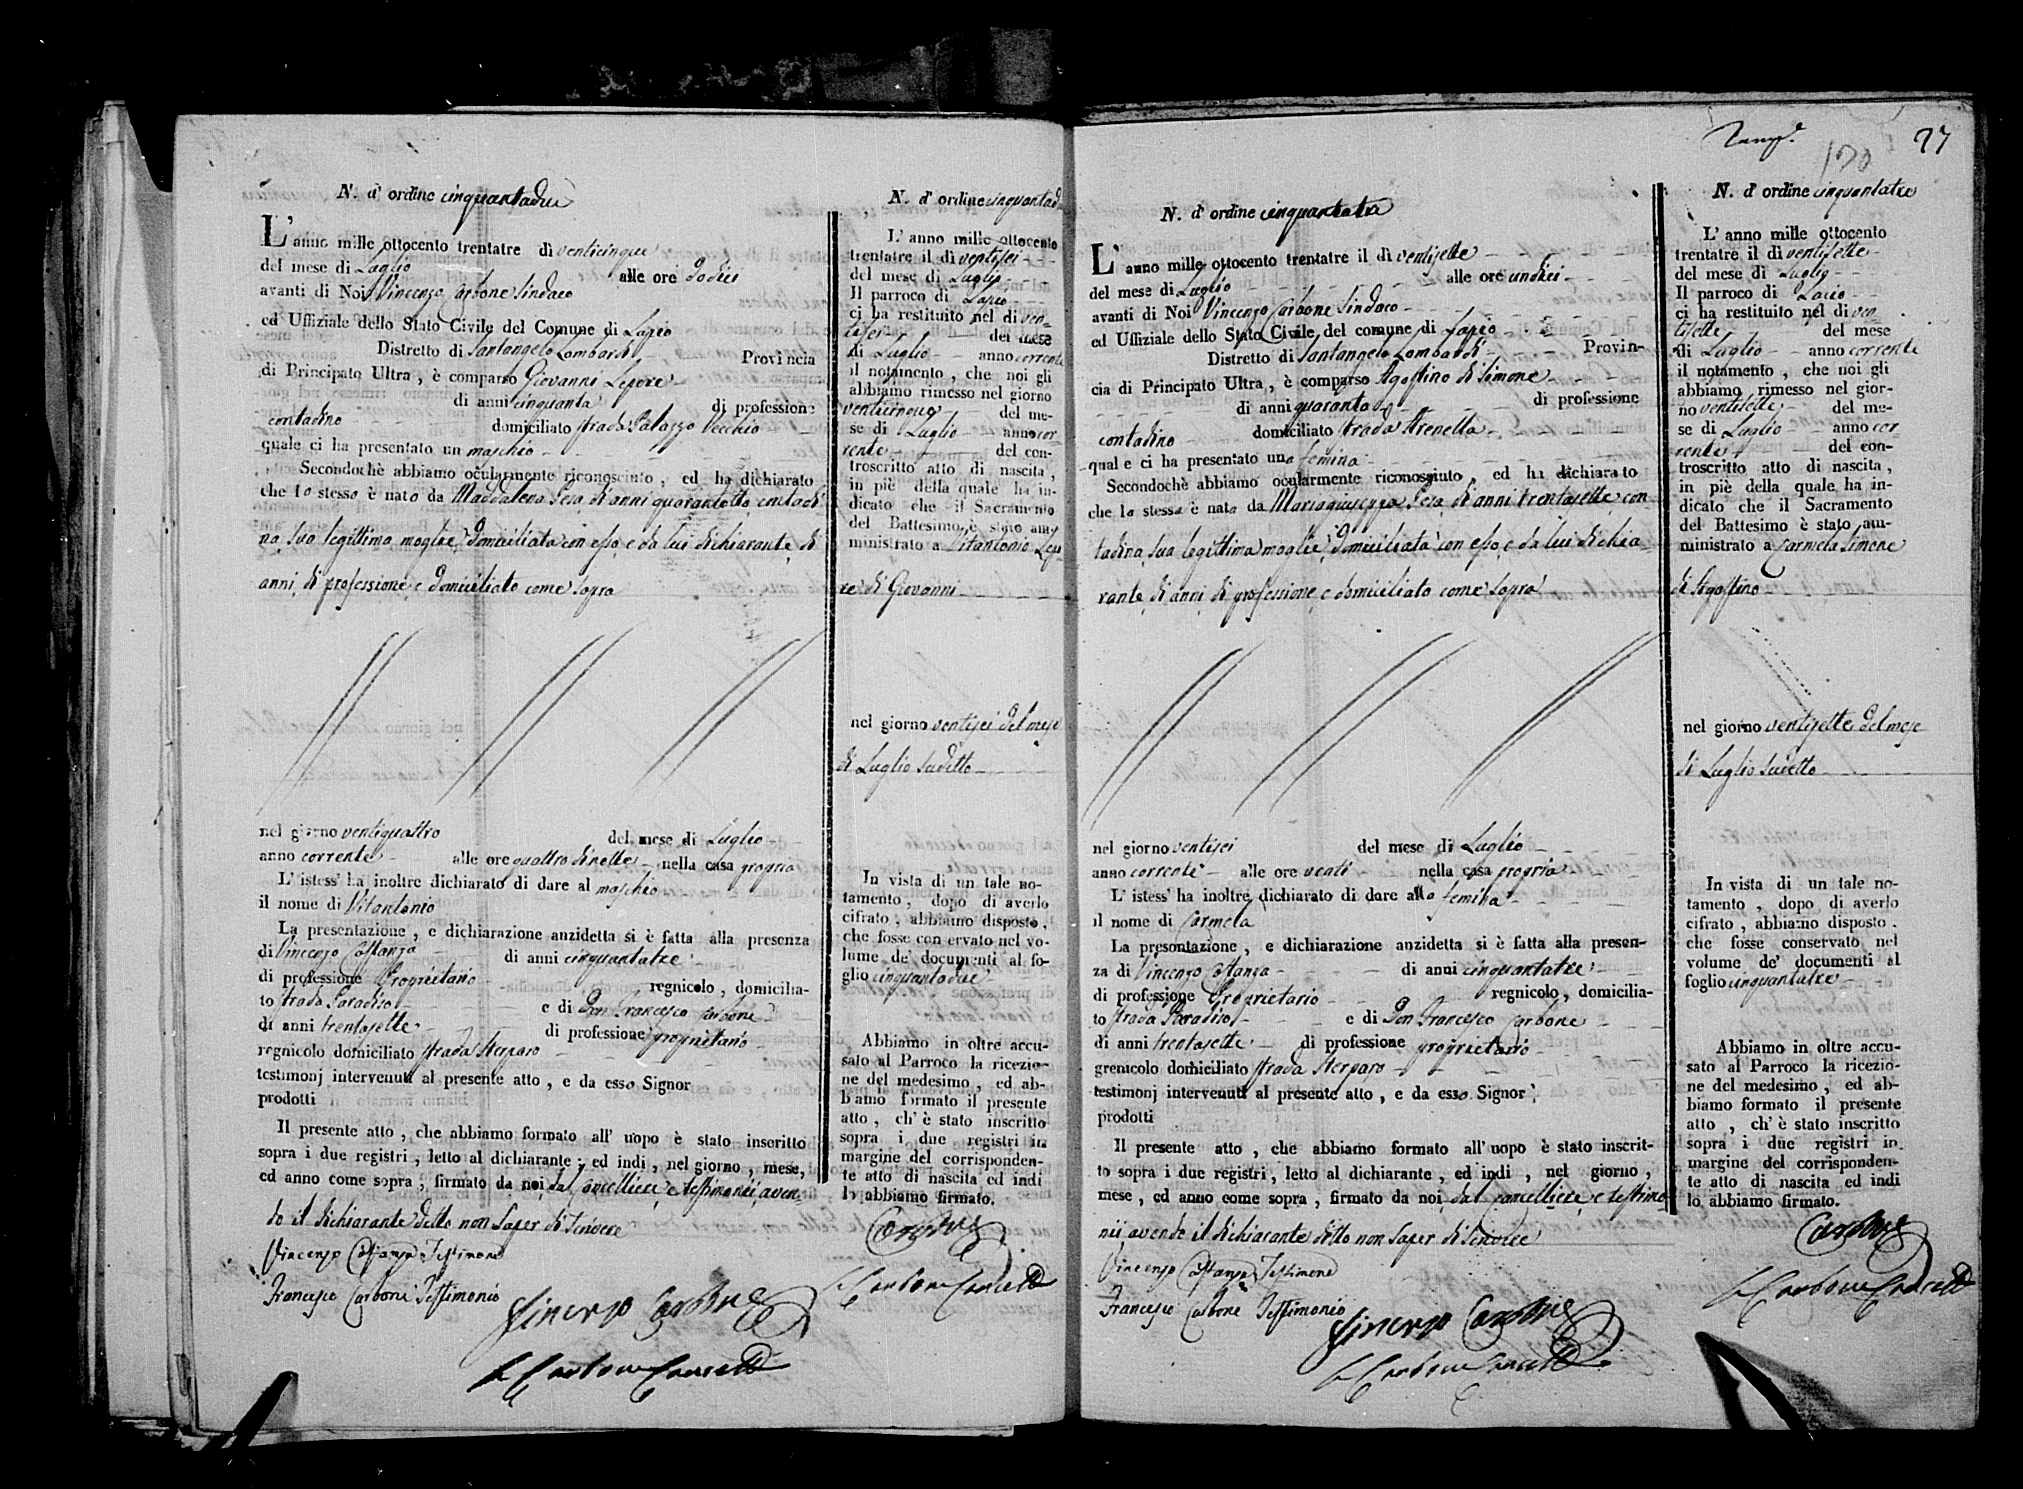 N. d' ordine cinquantadue
L' anno mille ottocento trentatre dì venticinque
del mese di Luglio alle ore dodici
avanti di Noi Vincenzo Carbone Sindaco
ed Uffiziale dello Stato Civile del Comune di Lapio
Distretto di Santangelo Lombardi Provincia
di Principato Ultra, è comparso Giovanni Lepore
di anni cinquanta di professione
contadino domiciliato strada Palazzo Vecchio
quale ci ha presentato un maschio
Secondochè abbiamo ocularmente riconosciuto, ed ha dichiarato
che lo stesso è nato da Maddalena Sesa di anni quarantotto contadi
na, sua legittima moglie, domiciliata con esso, e da lui dichiarante, di
anni, di professione, e domiciliato come sopra
nel giorno ventiquattro del mese di Luglio
anno corrente alle ore quattro di notte nella casa propria
L' istess' ha inoltre dichiarato di dare al maschio
il nome di Vitantonio
La presentazione, e dichiarazione anzidetta si è fatta alla presenza
di Vincenzo Costanza di anni cinquantatre
di professione Proprietario regnicolo, domicilia-
to strada Paradiso e di Don Francesco Carbone
di anni trentasette di professione proprietario
regnicolo domiciliato strada Sterparo
testimonj intervenuti al presente atto, e da esso Signor
prodotti
Il presente atto, che abbiamo formato all' uopo è stato inscritto
sopra i due registri, letto al dichiarante; ed indi, nel giorno, mese,
ed anno come sopra, firmato da noi, dal Cancelliere, e testimonii, aven-
do il dichiarante detto non saper di scrivere
Vincenzo Costanza Testimone
Francesco Carbone Testimonio
Vincenzo Carbone
Carbone Cancell
N. d' ordine cinquantad
L' anno mille ottocento
trentatre il dì ventisei
del mese di Luglio
Il parroco di Lapio
ci ha restituito nel dì ven-
tisei del mese
di Luglio anno corrente
il notamento, che noi gli
abbiamo rimesso nel giorno
venticinque del me-
se di Luglio anno cor
rente del con-
troscritto atto di nascita,
in piè della quale ha in-
dicato che il Sacramento
del Battesimo è stato am-
ministrato a Vitantonio Lepo
re di Giovanni
nel giorno ventisei del mese
di Luglio sudetto
In vista di un tale no-
tamento, dopo di averlo
cifrato, abbiamo disposto,
che fosse con ervato nel vo-
lume de' documenti al fo-
glio cinquantadue
Abbiamo in oltre accu-
sato al Parroco la ricezio-
ne del medesimo, ed ab-
biamo formato il presente
atto, ch' è stato inscritto
sopra i due registri in
margine del corrisponden-
te atto di nascita ed indi
lo abbiamo firmato.
Carbone
Carbone Cancell
97
170
N. d' ordine cinquantatre
L' anno mille ottocento trentatre il dì ventisette
del mese di Luglio alle ore undici
avanti di Noi Vincenzo Carbone Sindaco
ed Uffiziale dello Stato Civile del comune di Lapio
Distretto di Santangelo Lombardi Provin-
cia di Principato Ultra, è comparso Agostino di Simone
di anni quaranta di professione
contadino domiciliato strada Arenella
quale ci ha presentato una femina
Secondochè abbiamo ocularmente riconosciuto, ed ha dichiarato
che la stessa è nata da Mariagiuseppa Sesa di anni trentasette, con
tadina, sua legittima moglie, domiciliata con esso, e da lui dichia-
rante, di anni, di professione, e domiciliato come sopra
nel giorno ventisei del mese di Luglio
anno corrente alle ore venti nella casa propria
L' istess' ha inoltre dichiarato di dare alla femina
il nome di Carmela
La presentazione, e dichiarazione anzidetta si è fatta alla presen-
za di Vincenzo Costanza di anni cinquantatre
di professione Proprietario regnicolo, domicilia-
to strada Paradiso e di Don Francesco Carbone
di anni trentasette di professione proprietario
grenicolo domiciliato strada Sterparo
testimonj intervenuti al presente atto, e da esso Signor
prodotti
Il presente atto, che abbiamo formato all' uopo è stato inscrit-
to sopra i due registri, letto al dichiarante, ed indi, nel giorno,
mese, ed anno come sopra, firmato da noi, dal Cancelliere, e testimo
nii, avendo il dichiarante detto non saper di scrivere
Vincenzo Costanza Testimone
Francesco Carbone Testimonio
Vincenzo Carbone
Carbone Cancell
N. d' ordine cinquantatre
L' anno mille ottocento
trentatre il dì ventisette
del mese di Luglio
Il parroco di Lapio
ci ha restituito nel dì ven
tisette del mese
di Luglio anno corrente
il notamento, che noi gli
abbiamo rimesso nel gior-
no ventisette del me-
se di Luglio anno cor
rente del con-
troscritto atto di nascita,
in piè della quale ha in-
dicato che il Sacramento
del Battesimo è stato am-
ministrato a Carmela Simone
di Agostino
nel giorno ventisette del mese
di Luglio sudetto
In vista di un tale no-
tamento, dopo di averlo
cifrato, abbiamo disposto.
che fosse conservato nel
volume de' documenti al
foglio cinquantatre
Abbiamo in oltre accu-
sato al Parroco la ricezio-
ne del medesimo, ed ab-
biamo formato il presente
atto, ch' è stato inscritto
sopra i due registri in
margine del corrisponden-
te atto di nascita ed indi
lo abbiamo firmato.
Carbone
Carbone Cancell